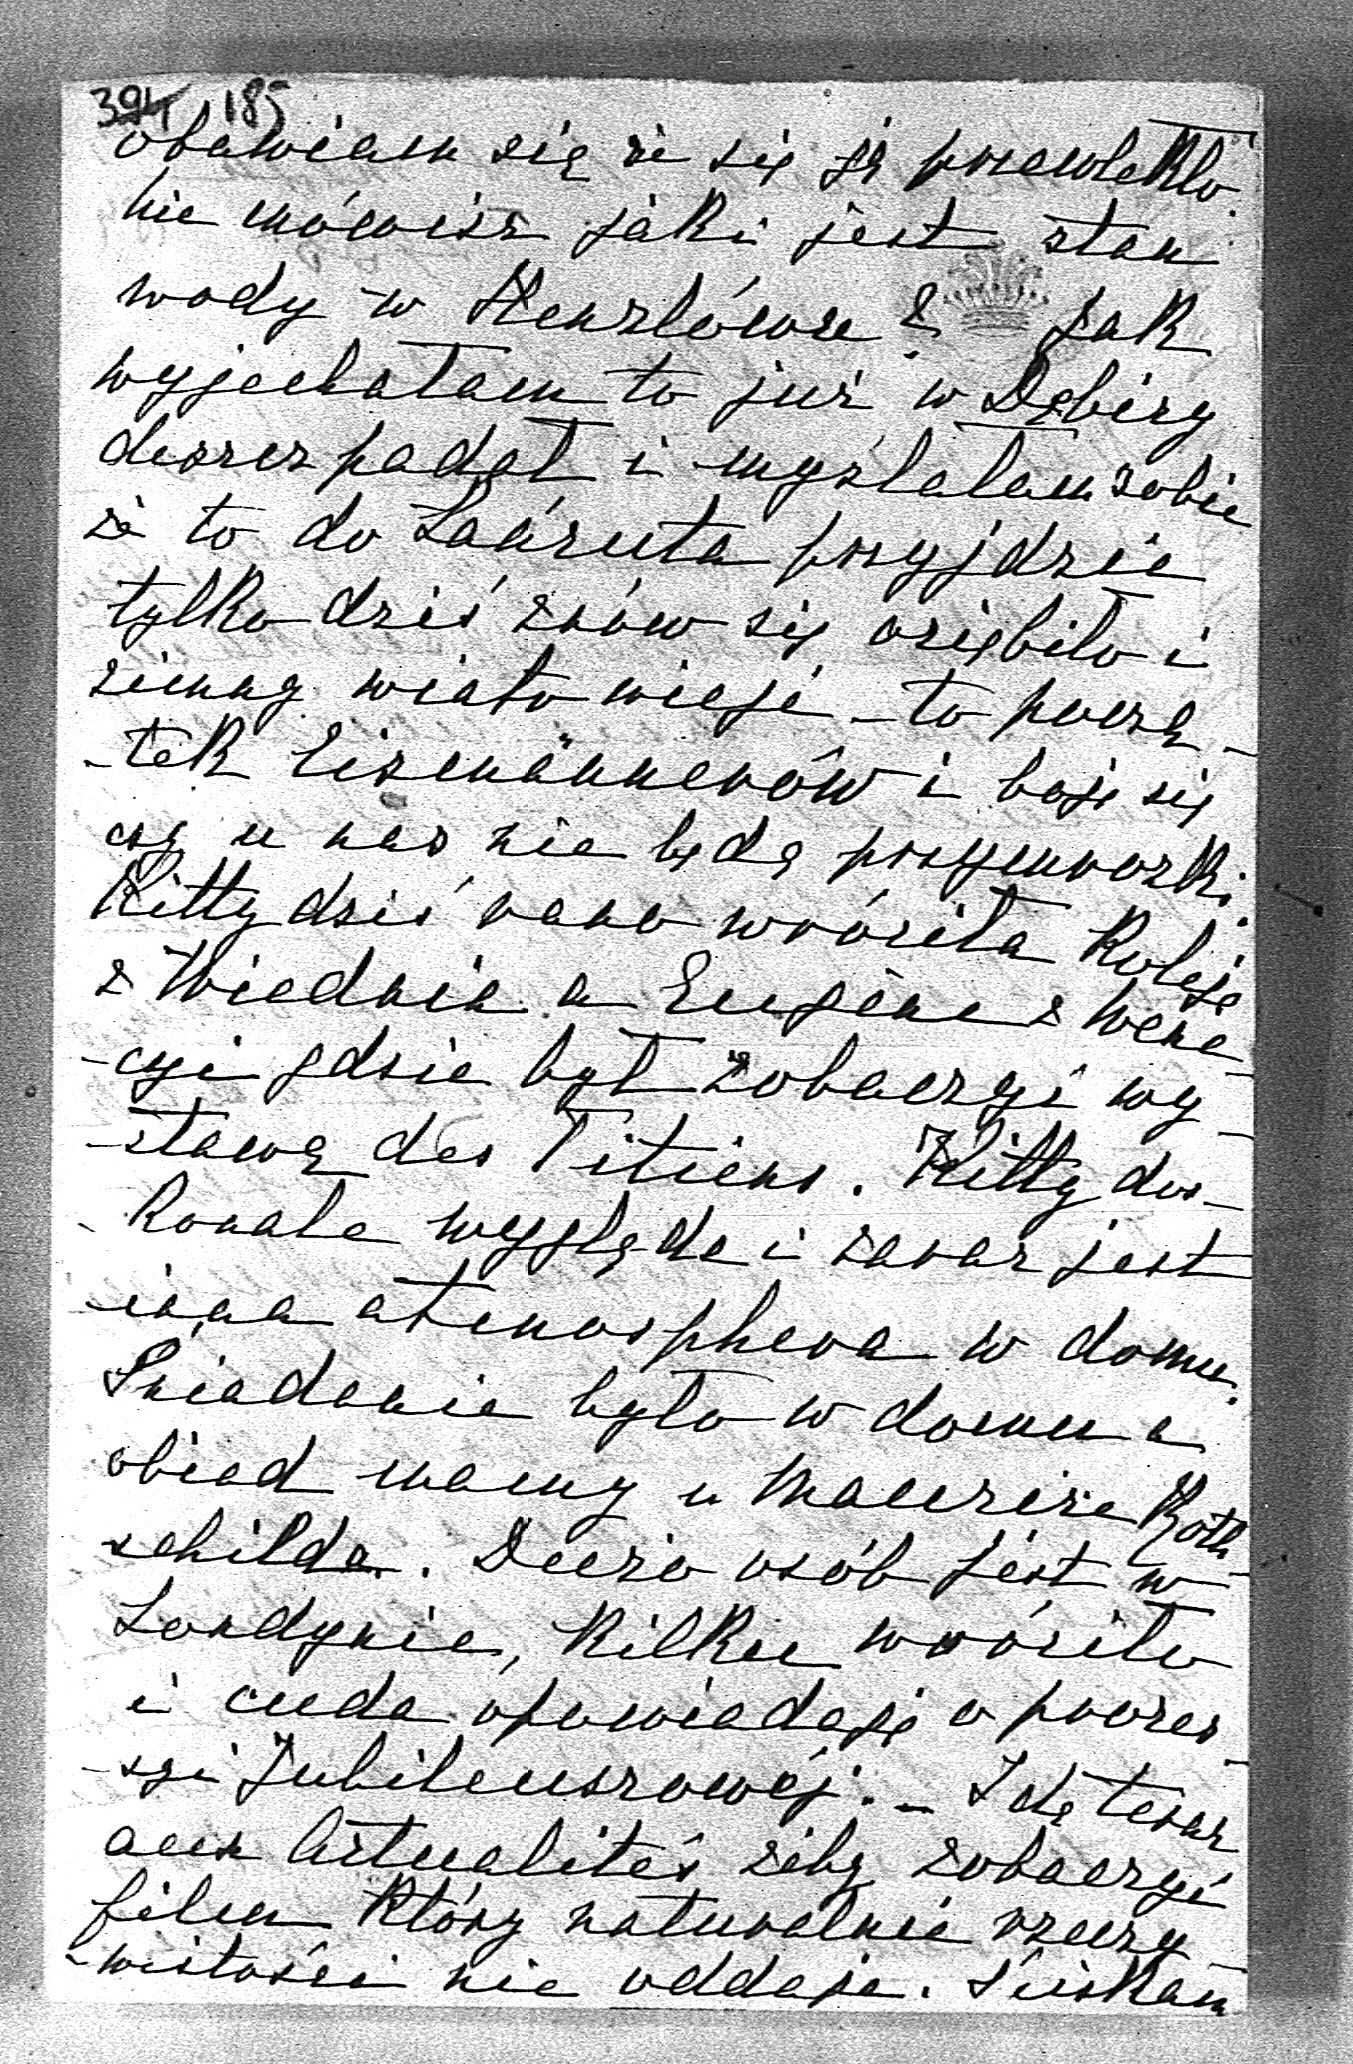 394 185
obawiam się że się ją przewlekło.
nie mówisz jaki jest stan
wody w Henzlówce? Jak
wyjechałam to już w Dębicy
deszcz padał i myślałam sobie
że to do Łańcuta przyjdzie
tylko dziś znów się oziębiło i
zimny wiatr wieje – to począ-
-tek Eismännerów i boję się
czy u nas nie będą przymrozki.
Kitty dziś rano wróciła koleją
z Wiednia a Eugène z Wene-
-cyi gdzie był zobaczyć wy-
-stawę des Titiens. Kitty dos-
-konale wygląda i zaraz jest
inna atmosphera w domu.
Śniadanie było w domu a
obiad mamy u Maurice Roth-
schilda. Dużo osób jest w
Londynie, kilku wróciło
i cuda opowiadają o proces-
-syi Jubileuszowej. – Idę teraz
aux Actualités żeby zobaczyć
film który naturalnie rzeczy-
-wistości nie oddaje. Ściskam